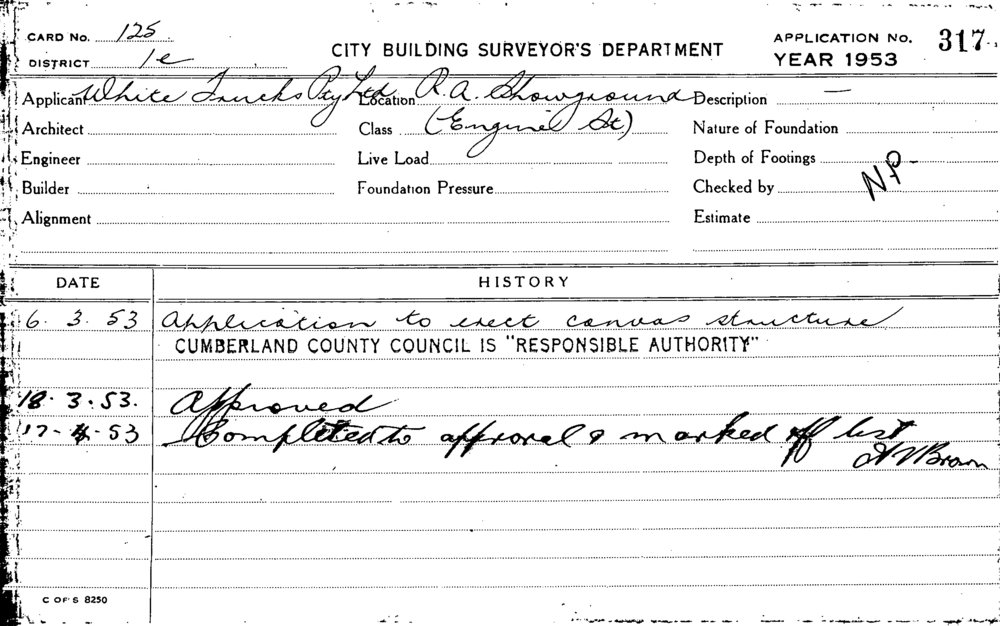 CARD No. 125
DISTRICT 1e
CITY BUILDING SURVEYOR'S DEPARTMENT
APPLICATION No. 317
YEAR 1953
Applicant White Trucks Pty Ltd Location R.A. Showground Description —
Architect Class (Engine St) Nature of Foundation
Engineer Live Load Depth of Footings
Builder Foundation Pressure Checked by NP
Alignment Estimate
DATE HISTORY
6. 3. 53 Application to erect canvas structure
CUMBERLAND COUNTY COUNCIL IS "RESPONSIBLE AUTHORITY"
18. 3. 53. Approved
17-4-53 Completed to approval & marked off list
Brown
C OF S 8250